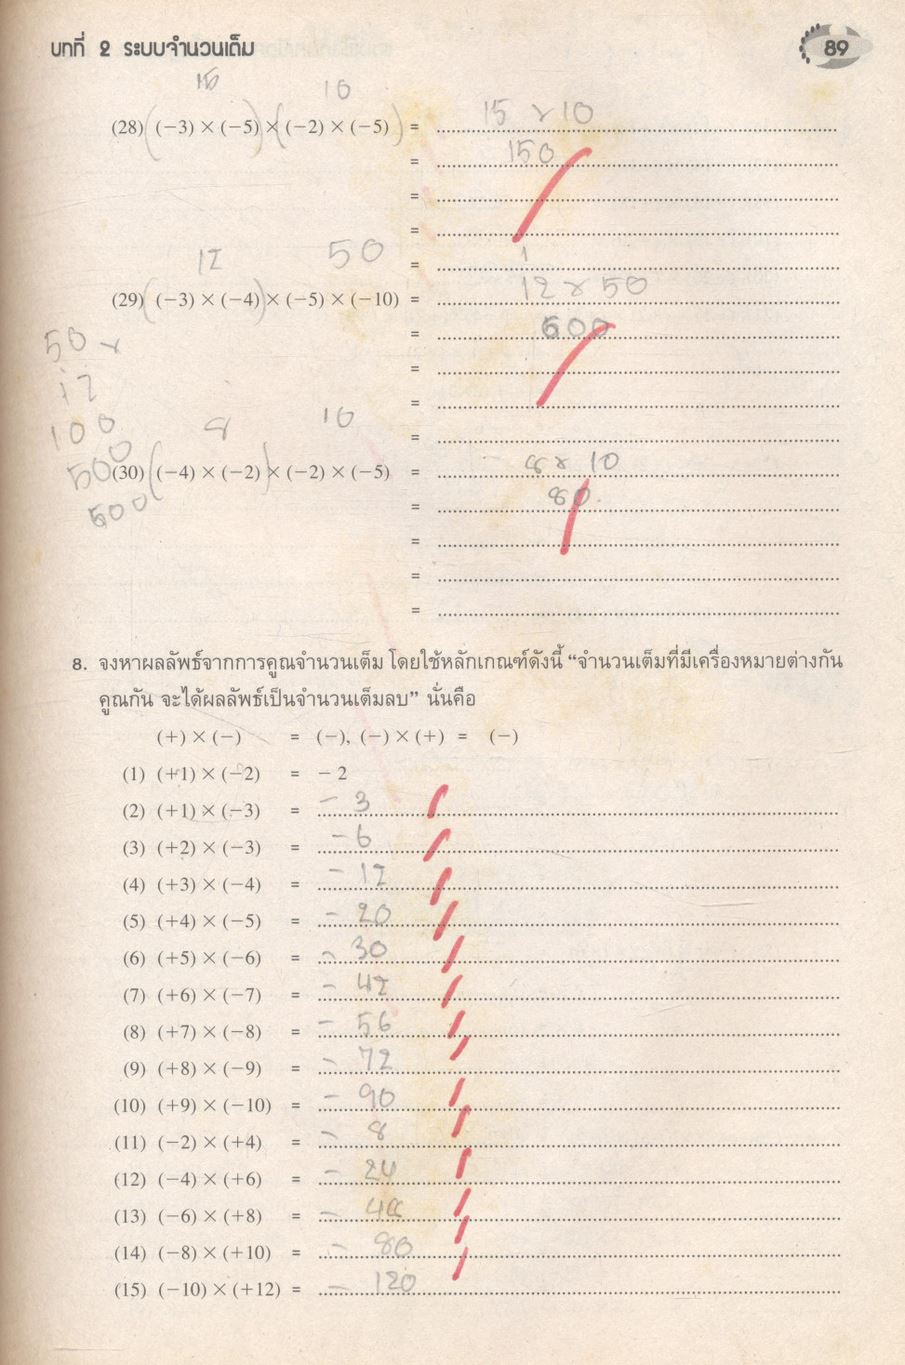 บทที่ 2 ระบบจำนวนเต็ม 89
15 10
(28) (−3) × (−5) × (−2) × (−5) = 15 × 10
= 150
=
=
12 50 =
(29) (−3) × (−4) × (−5) × (−10) = 12 × 50
= 600
50 ×
12 =
=
100 8 10 =
500 (30) (−4) × (−2) × (−2) × (−5) = 8 × 10
600 = 80
=
=
=
8. จงหาผลลัพธ์จากการคูณจำนวนเต็ม โดยใช้หลักเกณฑ์ดังนี้ “จำนวนเต็มที่มีเครื่องหมายต่างกัน
คูณกัน จะได้ผลลัพธ์เป็นจำนวนเต็มลบ” นั่นคือ
(+) × (−) = (−), (−) × (+) = (−)
(1) (+1) × (−2) = − 2
(2) (+1) × (−3) = − 3
(3) (+2) × (−3) = − 6
(4) (+3) × (−4) = − 12
(5) (+4) × (−5) = − 20
(6) (+5) × (−6) = − 30
(7) (+6) × (−7) = − 42
(8) (+7) × (−8) = − 56
(9) (+8) × (−9) = − 72
(10) (+9) × (−10) = − 90
(11) (−2) × (+4) = − 8
(12) (−4) × (+6) = − 24
(13) (−6) × (+8) = − 48
(14) (−8) × (+10) = − 80
(15) (−10) × (+12) = − 120